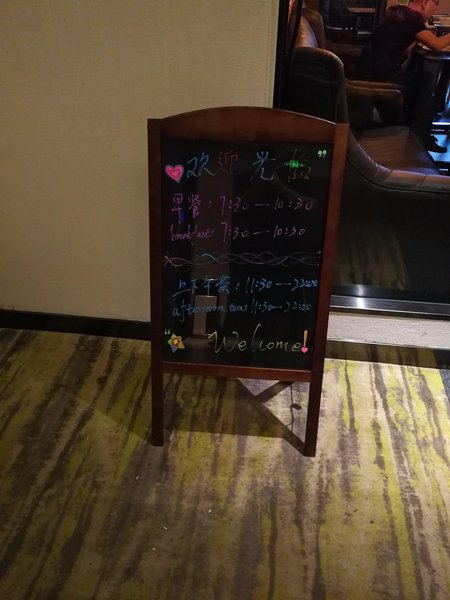 欢迎光临
早餐：7:30—10:30
breakfast: 7:30—10:30
上下午茶：11:30—22:00
afternoon tea: 11:30—22:00
Welcome!